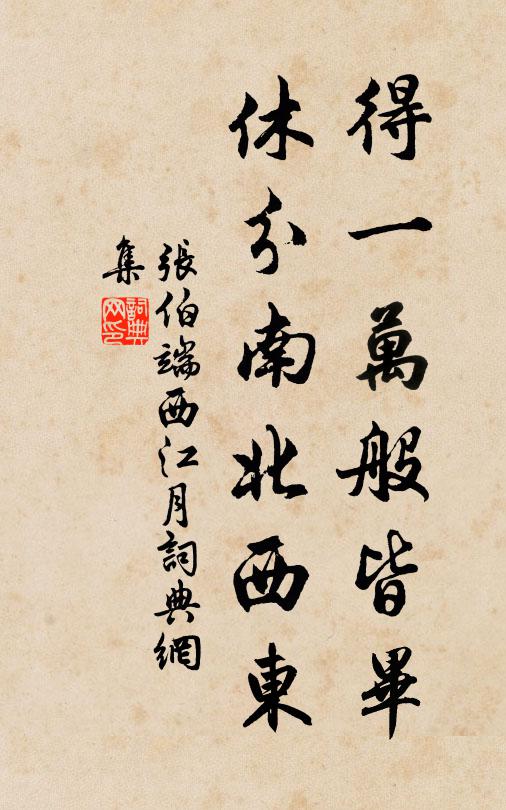 得一萬般皆畢
休分南北西東
張伯端西江月詞典網
集
詞典
网印